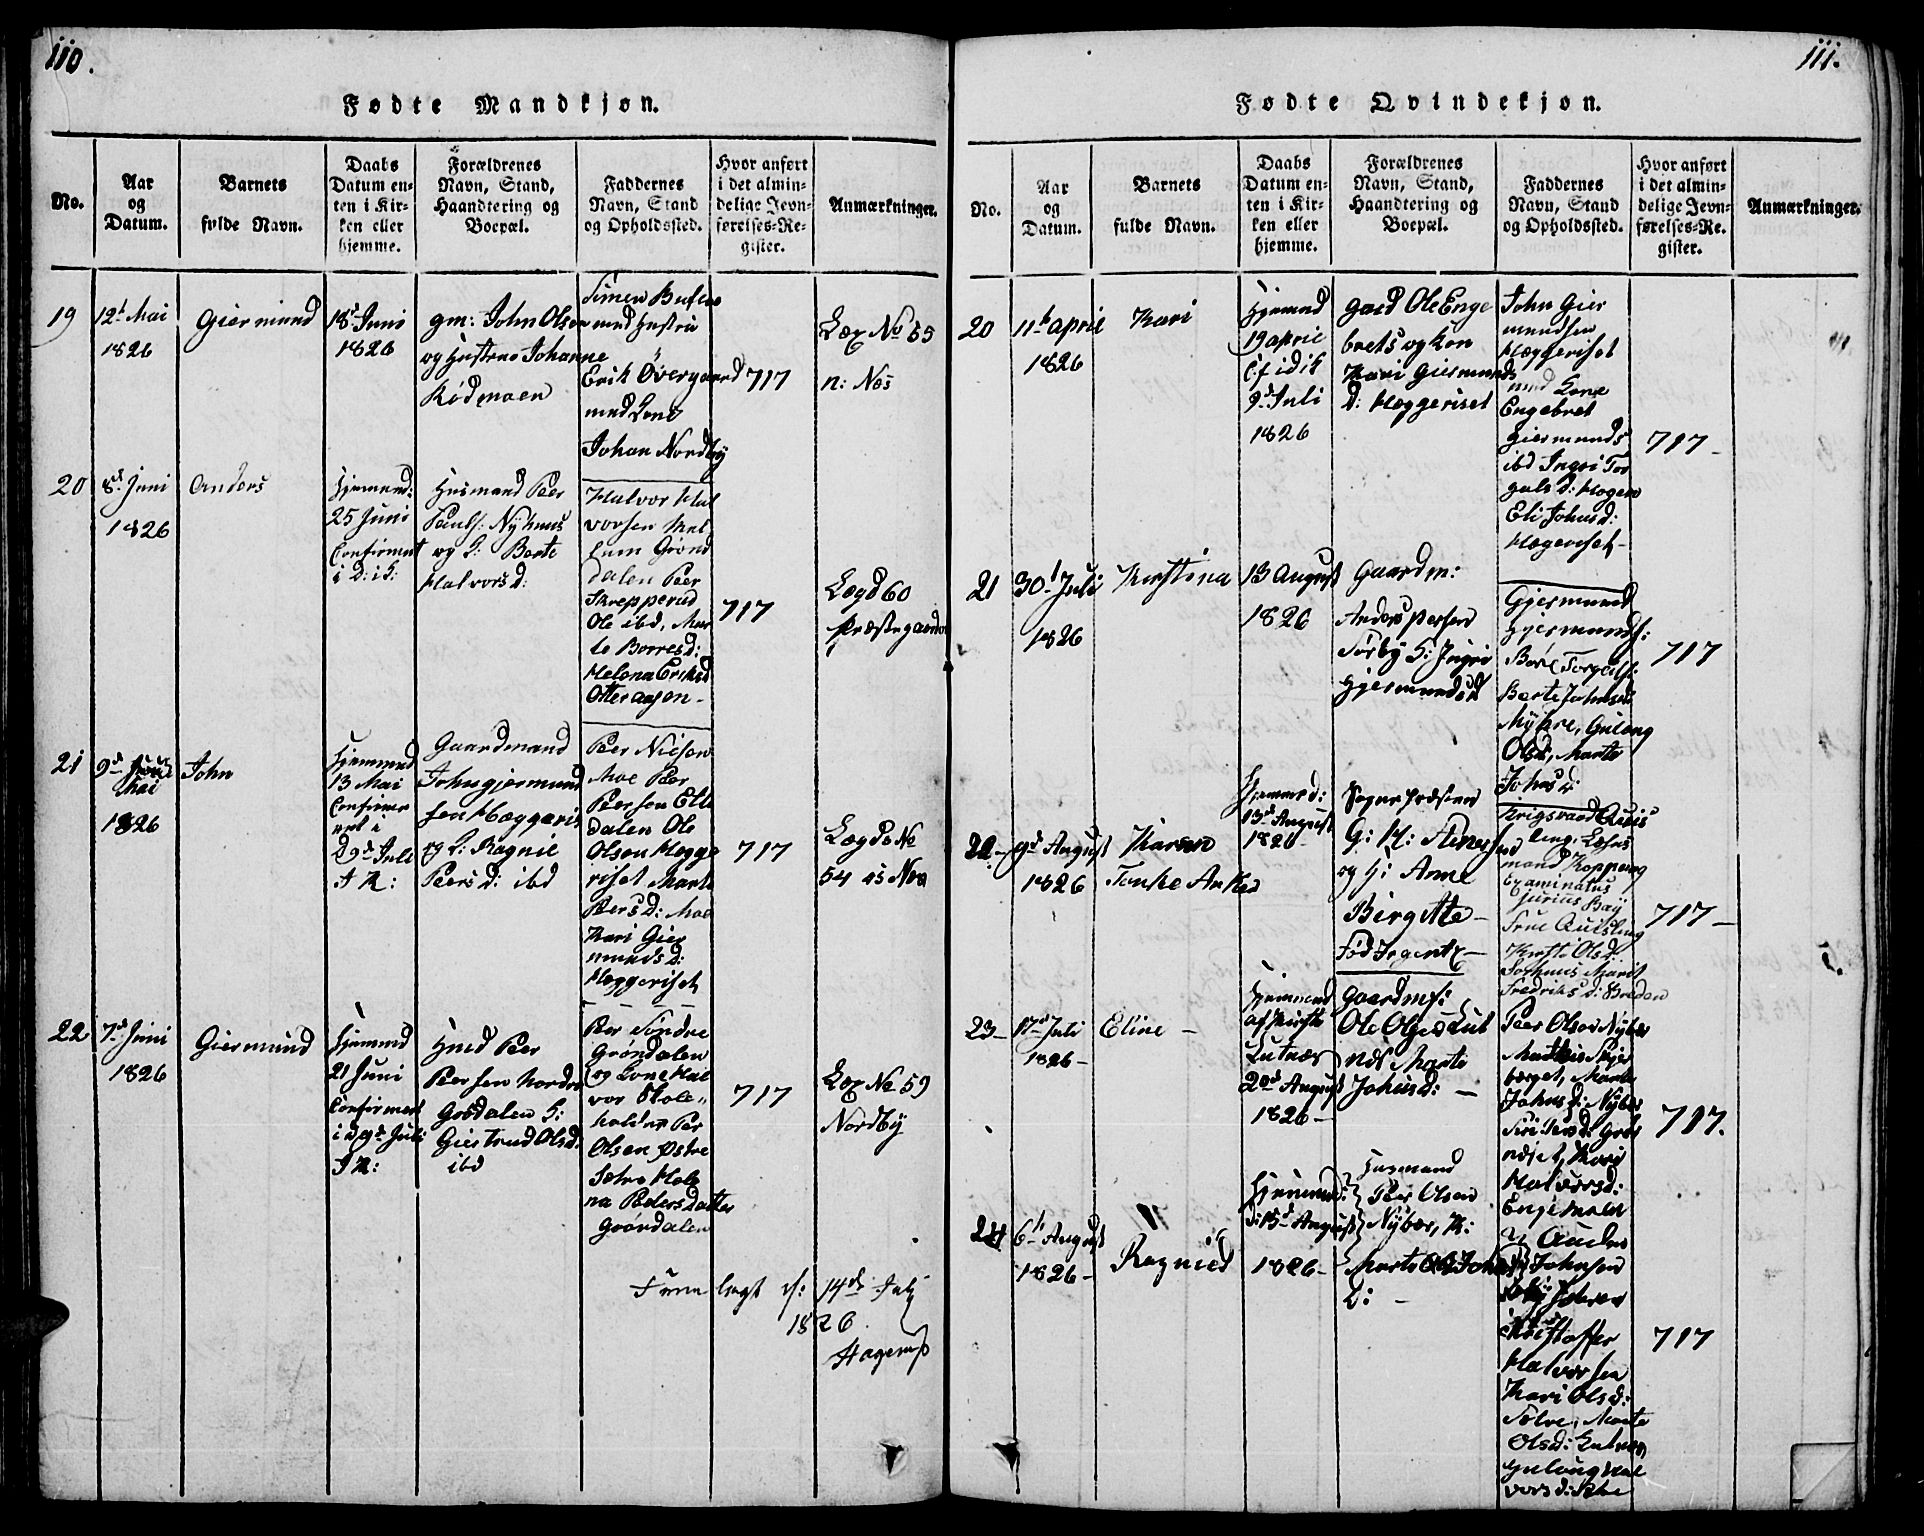 110.
Fødte Mandkjøn.
No.
Aar
og
Datum.
Barnets
fulde Navn.
Daabs
Datum en-
ten i Kir-
ken eller
hjemme.
Forældrenes
Navn, Stand,
Haandtering og
Boepæl.
Faddernes
Navn, Stand
og Opholdssted.
Hvor anført
i det almin-
delige Jevn-
førelses-Re-
gister.
Anmærkninger.
19
12t Mai
1826
Giermund
18d Juni
1826
gm: John Olsen
og Hustrue Johanne
Rödmoen
Simen
med Hustru
Erik Övergaard
med Kone
Johan Nordby
717
Læg No 55
n: Næs
20
8d Juni
1826
Anders
Hjemmed:
25 Juni
Confirmert
i D: i K:
Husmand Peer
Pauls: Nyhuus
og K: Berte
Halvorsd:
Halvor Hal
vorsen
Grönd
dalen Peer
Skrepperud
Ole ibd, Mar
te Borresd:
Helena Ericksd
Otteraasen-
717
Lægd 60
Præstegaarden
21
9d
Mai
1826
John
Hjemmed
13 Mai
Confirmer
ert i
29d Juli
I K:
Gaardmand
John gjermund
sen Hæggeris
og K: Ragnil
Peersd: ibd
Peer Nielsen
Moe Peer
Peersen Elte
dalen Ole
Olsen Hegge
riset Marte
Peersd: Moe
Kari Gier
mundsd:
Hæggeriset
717
Lægds No
54 43 Nes
22
7d Juni
1826
Giermund
Hjemmed
21 Juni
Confirmert
i 29d Juli
I K:
Hmd Peer
Peersen Nordre
Grødalen K:
Giertrud Olsd:
ibd
Peer Söndre
Gröndalen
og Kone Hal
vor Stole-
Per
Olsen Østre
Sætre Hele
na Pedersdatter
Gröndalen
717
Læg No 59
Nordby
Frem lagt d: 14de July
1826
Hagerup
111.
Fødte Qvindekjøn.
No.
Aar
og
Datum.
Barnets
fulde Navn.
Daabs
Datum en-
ten i Kir-
ken eller
hjemme.
Forældrenes
Navn, Stand,
Haandtering og
Boepæl.
Faddernes
Navn, Stand
og Opholdssted.
Hvor anført
i det almin-
delige Jevn-
førelses-Re-
gister.
Anmærkninger.
20
11te April
1826
Kari
Hjemmed
19 april
9d Juli
1826
Gaard Ole Enge
brets og Kon
Kari Giermunds
d: Hæggeriset
John Gier
mundsen
Hæggeriset
med Kone
Engebret
Giermunds
ibd Ingri Tor
galsd: Hogen
Eli Johnsd:
Hægeriset-
717-
21
30t Juli
1826
Kerstina
13 August
1826
Gaardm:
Anders Persen
Sörby K: Ingri
Gjermundsd
Gjermund
Gjermunds:
Börre Torgals:
Berte Johnsd
Myhre, Guleng
Olsd, Marte
Johnsd:
717
22-
9d August
1826
Karen
Tonke
Hjemmed:
13d August
1826-
Sogne Præsten
G: H:
og H: Anne
Birgitte-
Fød Irgens-
Krigsraad Quis
ling, Lehns
mand Koppang
Examinatus
jurius Bay
Frue Quisling
Kirsti Olsd:
Marit
Fredriksd: Breden
717-
23-
17d Juli
1826-
Eline-
Hjemmed
af Kirste
Lutnæs
20d August
1826-
Gaardms:
Ole Olsens Lut
næs Marte
Johnsd:-
Peer Olsen Nybær
Mathis Skjer
berget, Marte
Johnsd: Nyber
Siri Iversd: Gres
næset, Kari
Halvorsd:
717.
24
6t August
1826-
Ragnild
Hjemmed:
d: 15d August
1826-
Husmand
Peer Olsen
Nybær, K:
Marte
d:-
Anders
Johnsen
Kristoffer
Halvorsen
Kari Olsd:
Sætre, Marte
Olsd: Lutnæs
Guloug Hal
vorsd:
717